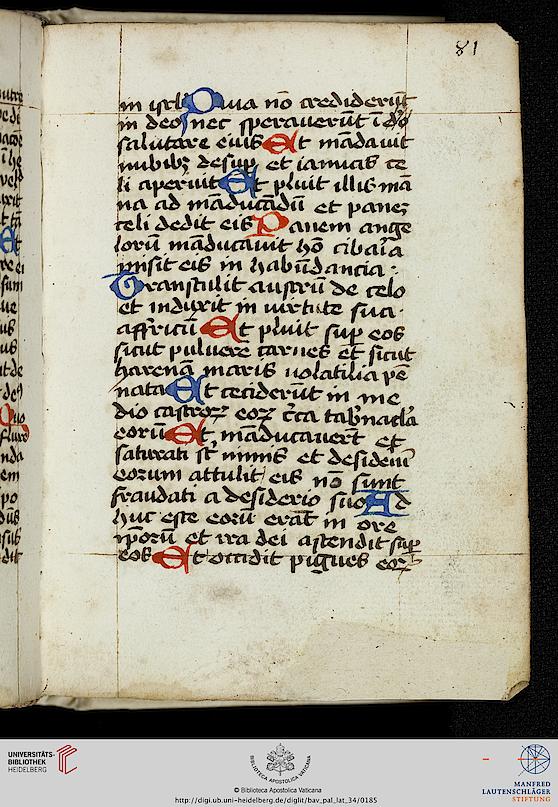 81
in isrl Quia nō crediderūt
in deo nec sperauerūt ī dō
salutare eius Et mādauit
nubibꝫ desup et ianuas ce
li aperuit Et pluit illis mā
na ad māducādū et paneꝫ
celi dedit eis Panem ange
lorū māducauit hō cibaīa
misit eis in habūdancia
Transtulit austrū de celo
et induxit in uirtute sua
affricū Et pluit sup eos
sicut puluere carnes et sicut
harenā maris uolatilia pē
nata Et ceciderūt in me
dio castroꝝ eoꝝ c̄ca tabnacl̄a
eorū Et māducauerūt et
saturati st̄ nimis et desideriū
eorum attulit eis nō sunt
fraudati a desiderio suo Ad
huc esce eorū erāt in ore
ip̄orū et ira dei ascendit sup
eos Et occidit pigues eoꝝ
UNIVERSITÄTS-
BIBLIOTHEK
HEIDELBERG
BIBLIOTECA APOSTOLICA VATICANA
© Biblioteca Apostolica Vaticana
http://digi.ub.uni-heidelberg.de/diglit/bav_pal_lat_34/0185
MANFRED
LAUTENSCHLÄGER
STIFTUNG